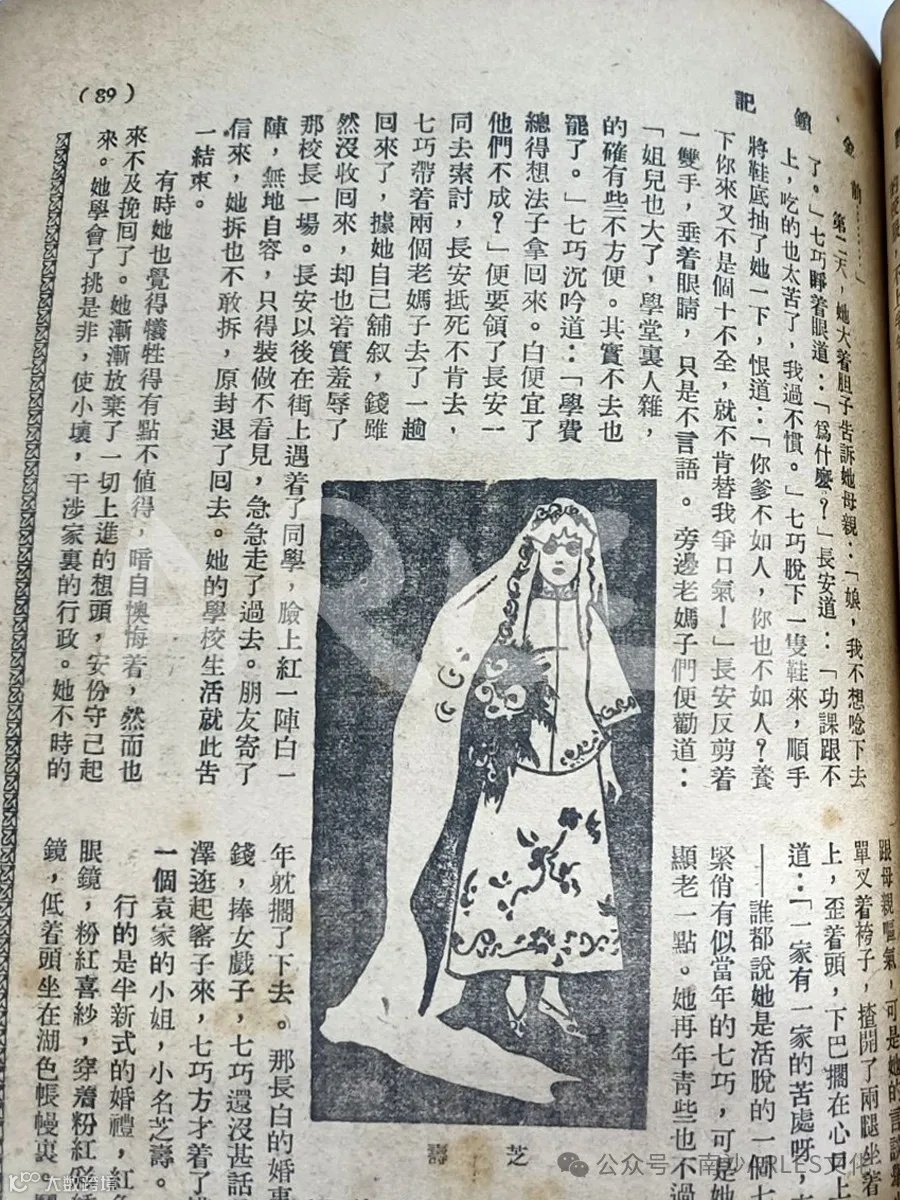 金鎖記
(89)
前………」
第二天，她大着胆子告訴她母親：「娘，我不想唸下去
了。」七巧睜着眼道：「爲什麽？」長安道：「功課跟不
上，吃的也太苦了，我過不慣。」七巧脫下一隻鞋來，順手
將鞋底抽了她一下，恨道：「你爹不如人，你也不如人？養
下你來又不是個十不全，就不肯替我爭口氣！」長安反剪着
一雙手，垂着眼睛，只是不言語。旁邊老媽子們便勸道：
「姐兒也大了，學堂裏人雜，
的確有些不方便。其實不去也
罷了。」七巧沉吟道：「學費
總得想法子拿回來。白便宜了
他們不成？」便要領了長安一
同去索討，長安抵死不肯去，
七巧帶着兩個老媽子去了一趟
回來了，據她自己舖叙，錢雖
然沒收回來，却也着實羞辱了
那校長一場。長安以後在街上遇着了同學，臉上紅一陣白一
陣，無地自容，只得裝做不看見，急急走了過去。朋友寄了
信來，她拆也不敢拆，原封退了回去。她的學校生活就此告
一結束。
有時她也覺得犧牲得有點不值得，暗自懊悔着，然而也
來不及挽回了。她漸漸放棄了一切上進的想頭，安份守己起
來。她學會了挑是非，使小壞，干涉家裏的行政。她不時的
跟母親嘔氣，可是她的言談
單叉着袴子，揸開了兩腿坐着
上，歪着頭，下巴擱在心口上
道：「一家有一家的苦處呀，
——誰都說她是活脫的一個七
緊俏有似當年的七巧，可是她
顯老一點。她再年青些也不過
芝壽
年躭擱了下去。那長白的婚事
錢，捧女戲子，七巧還沒甚話
澤逛起窰子來，七巧方才着了
一個袁家的小姐，小名芝壽。
行的是半新式的婚禮，紅色
眼鏡，粉紅喜紗，穿着粉紅彩
鏡，低着頭坐在湖色帳幔裏。
ARLES
公众号·南沙ARLES文化
大数跨境